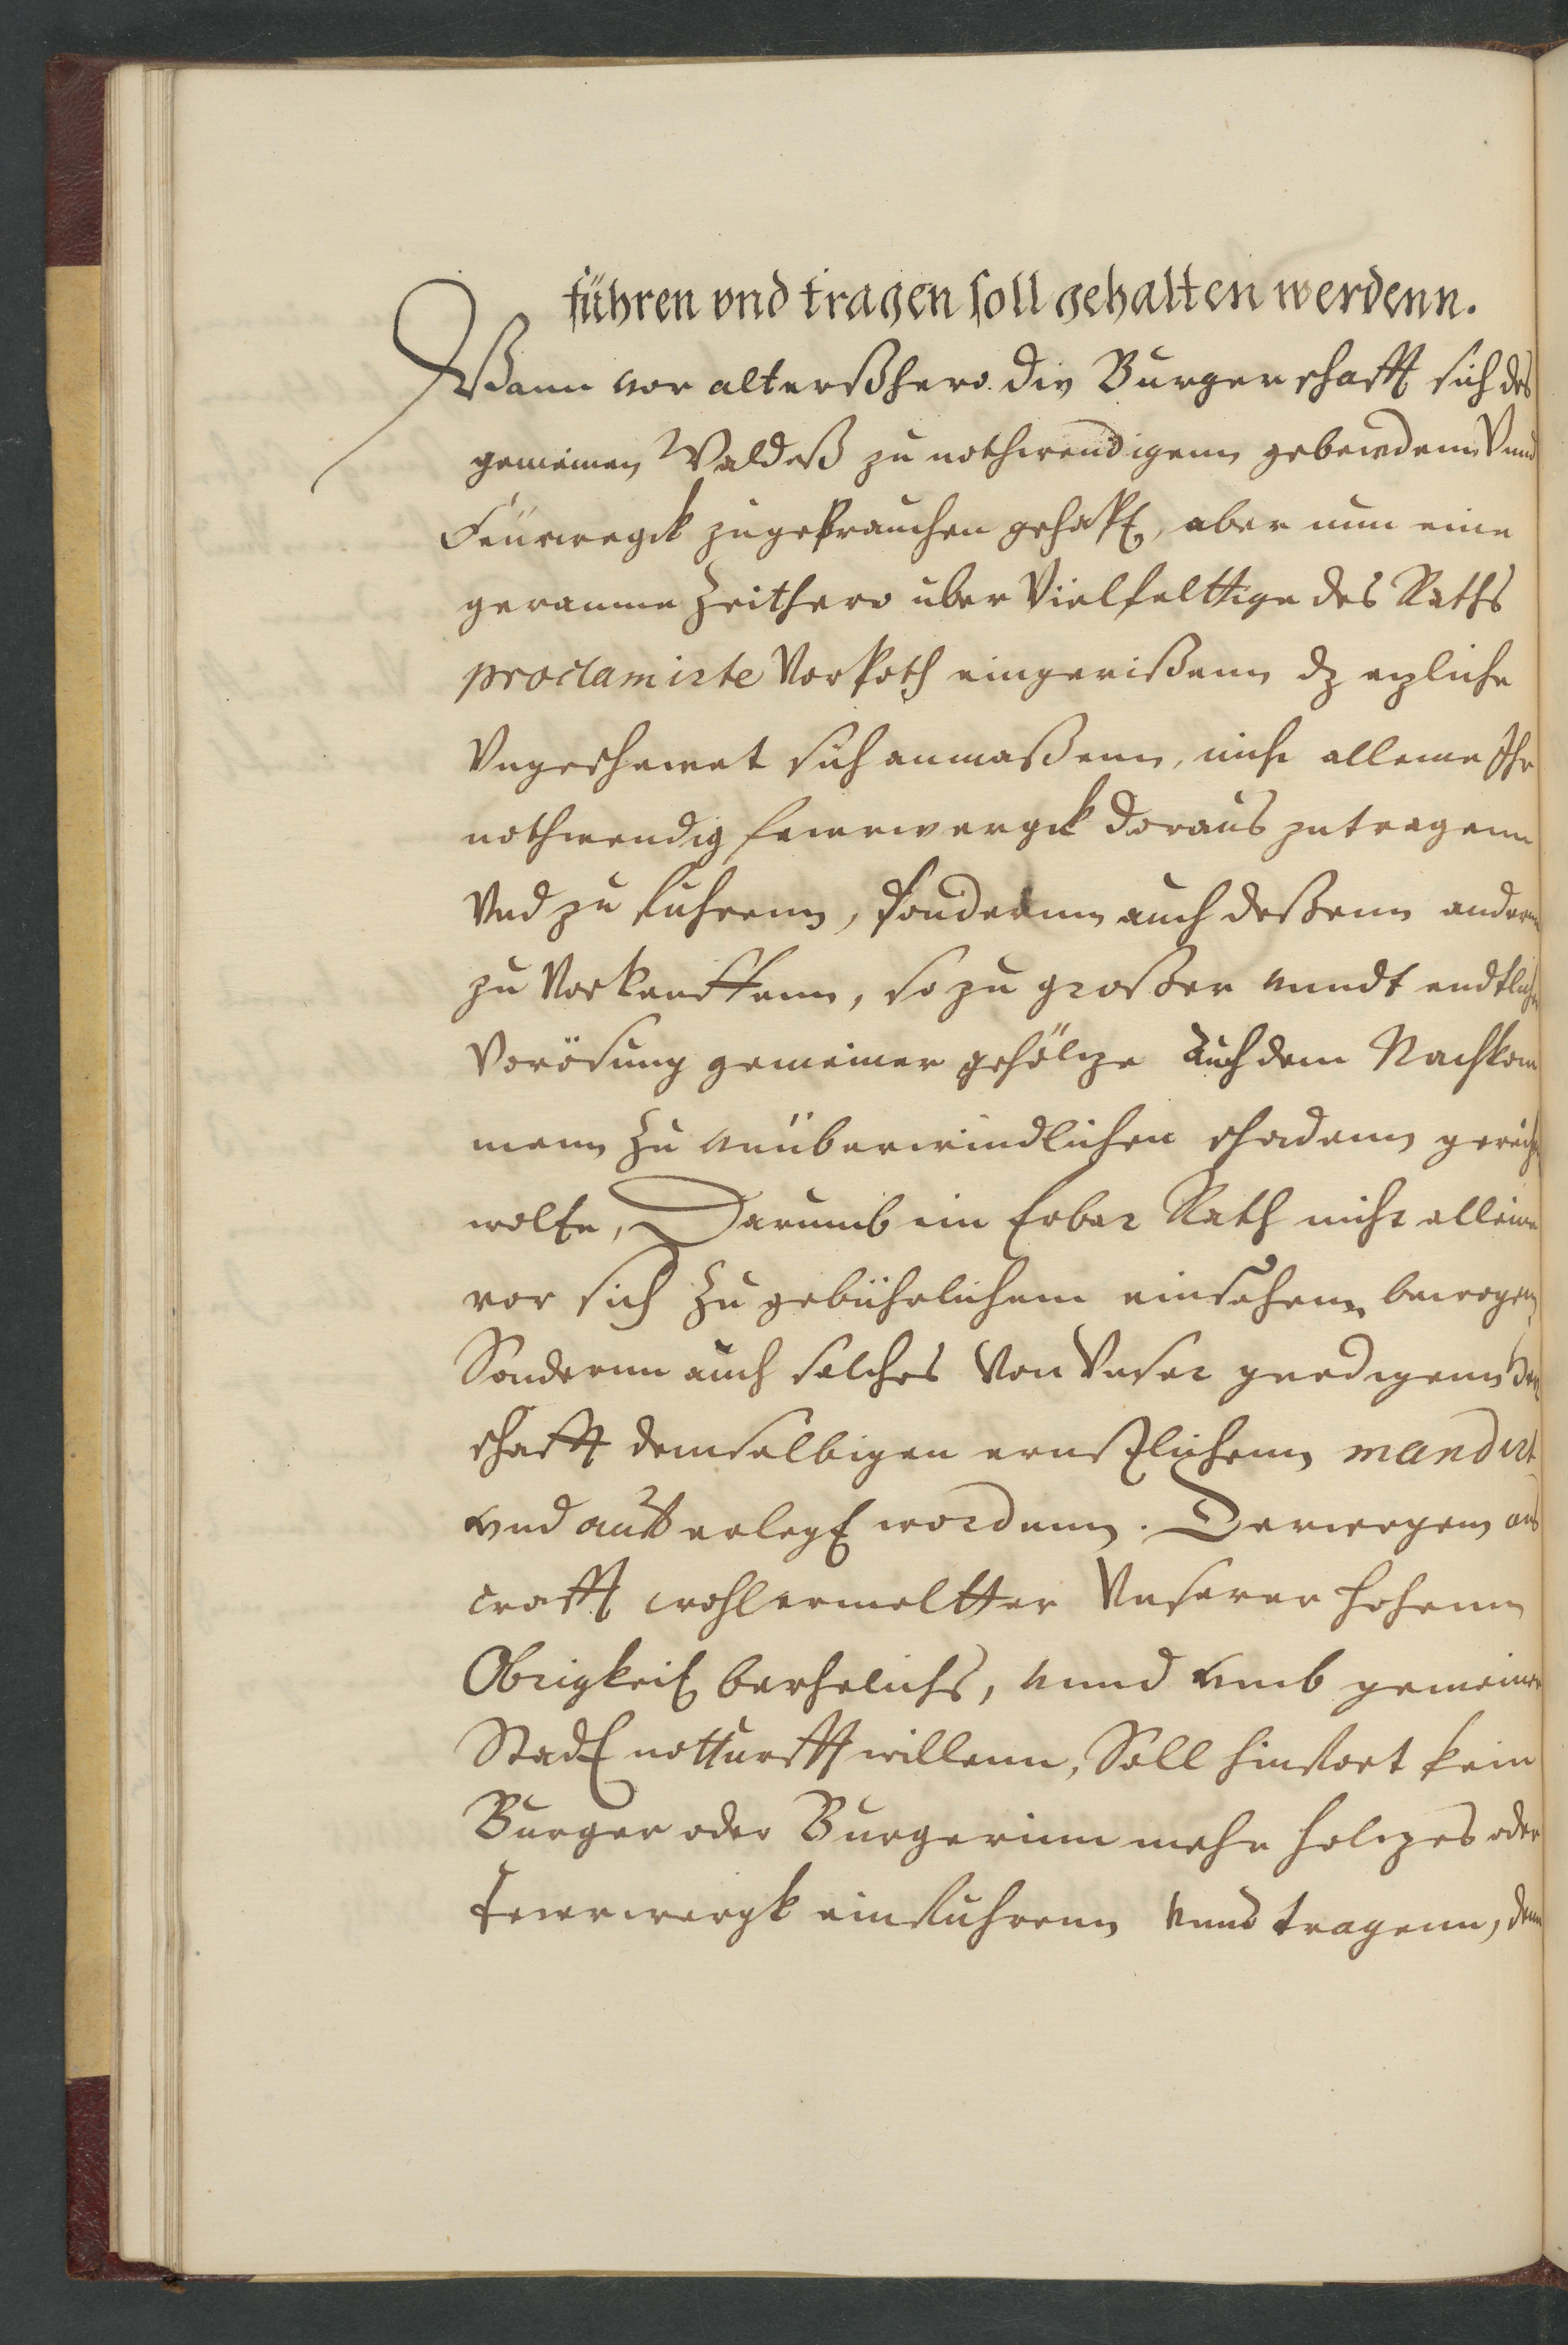 führen vnd tragen soll gehalten werdenn.
Wann vor alterßhero die Burgerschafft sich des
gemeinen Waldeß zu nothwendigenn gebewdenn Vnnd
Feüerwergk zugebrauchen gehabt, aber nun eine
geraume Zeithero uber Vielfelttige des Raths
proclamirte Vorboth eingerißenn dz ezliche
Vngeschewet sich anmaßenn, nicht alleine Ihr
nothwendig feuerwergk doraus zutragenn
Vnd zu führenn, sondernn auch deßenn andern
zu Vorkeuffenn, so zu großer vnndt endtlicher
Verösung gemeiner gehöltze Auch dem Nachkom
menn Zu vnüberwindlichen schadenn gereich
wolte, Darumb ein Erbar Rath nicht alleine
vor sich Zu gebührlichem einsehenn bewogen
Sondernn auch solches Von Vnser gnedigenn Herr
schafft demselbigen ernstlichenn mandirt
vnd aufferlegt wordenn. Derwegenn aus
crafft wohlermeltter Vnserer hohenn
Obrigkeit berhelichs, vnnd vmb gemeiner
Stadt notturfft willenn, Soll hinfort kein
Burger oder Burgerinn mehr holtzes oder
Feuerwergk einführenn vnnd tragenn, denn